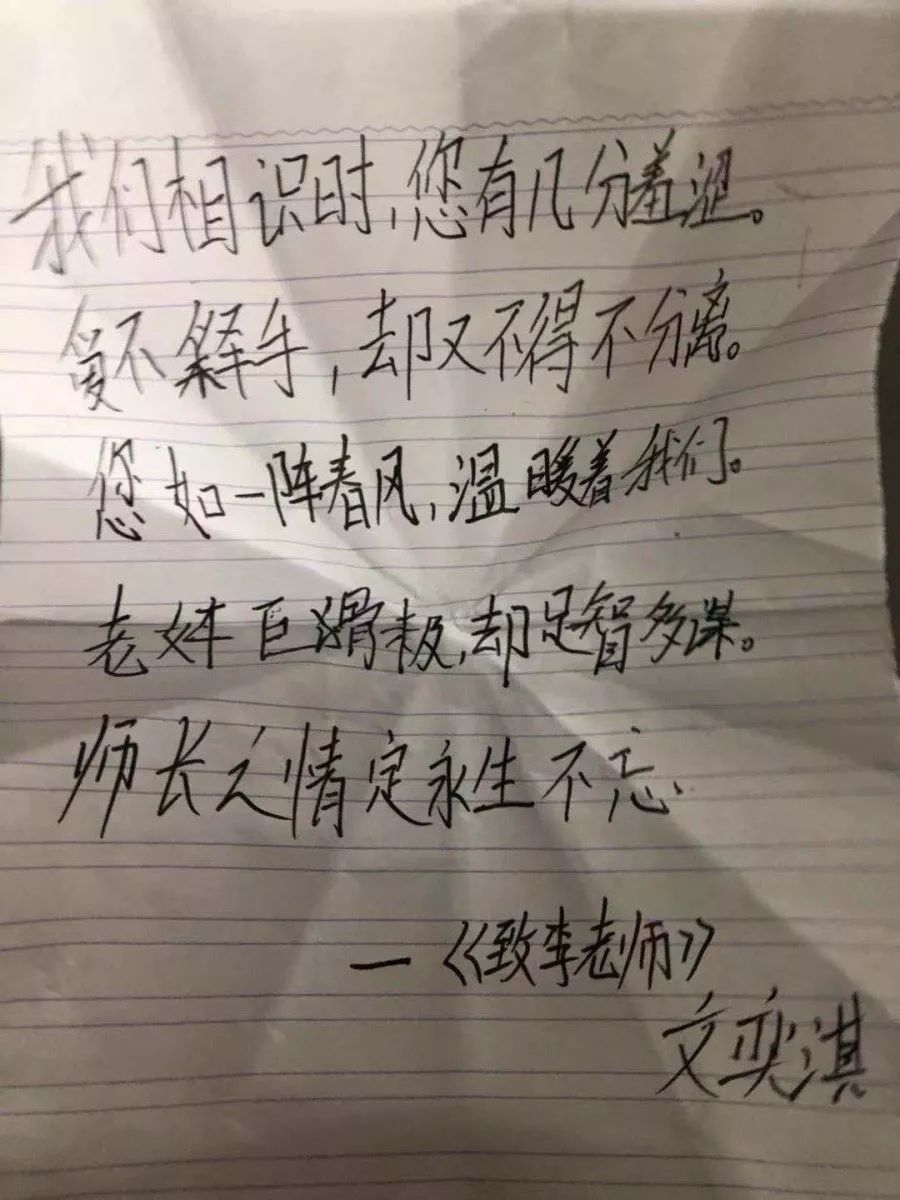 我们相识时,您有几分羞涩。
爱不释手,却又不得不分离。
您如一阵春风,温暖着我们。
老奸巨滑极,却足智多谋。
师长之情定永生不忘.
—《致李老师》
文奕淇